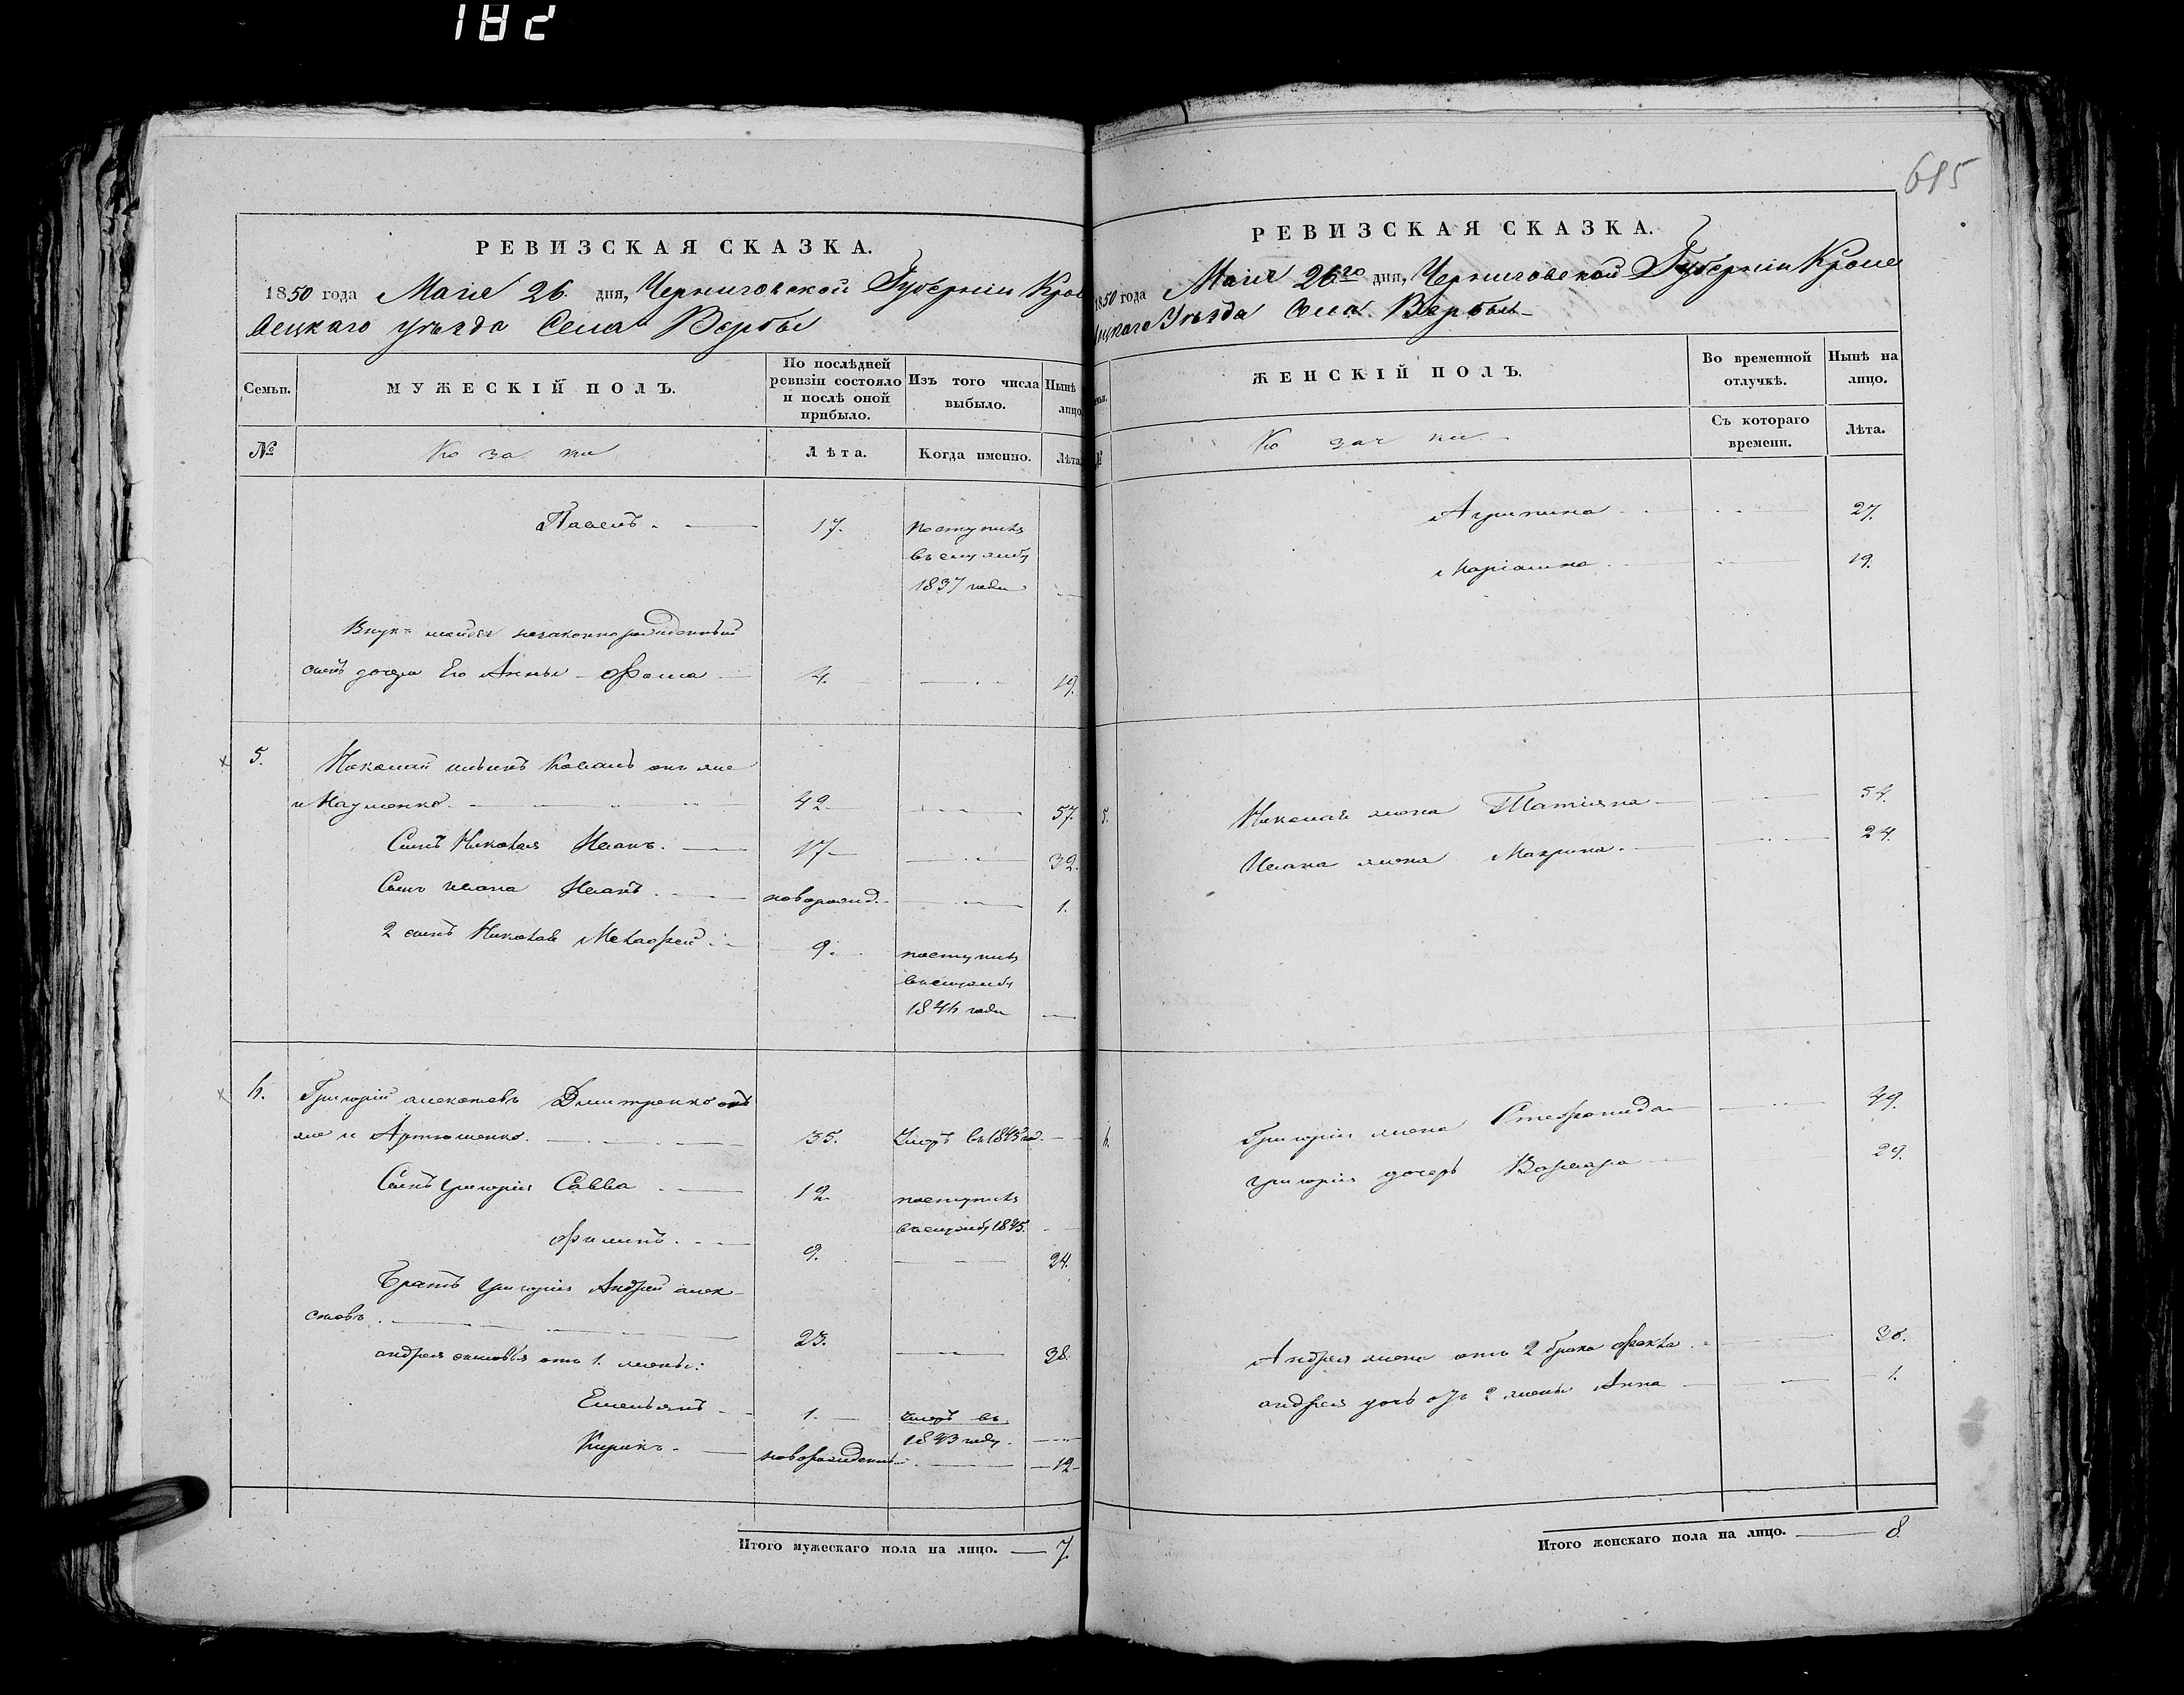 182
615
РЕВИЗСКАЯ СКАЗКА.
1850 года Маія 26. дня, Черниговской Губерніи Кро
вецкаго уѣзда Села Вербы
Семьи.
МУЖЕСКІЙ ПОЛЪ.
По послѣдней ревизіи состояло и послѣ оной прибыло.
Изъ того числа выбыло.
Нынѣ
лицо
№
Козаки
Лѣта.
Когда именно.
Лѣта
Павелъ. 17. поступилъ
въ службу
1837 года
Внукъ незаконнорожденный
сынъ дочери Его Анны Фома 4. 19.
5. Николай Коваль онъ же
и Науменко. 42 57.
Сынъ Николая Иванъ. 17 32.
Сынъ Ивана Иванъ. новорожд. 1.
2 сынъ Николая Меѳодей 9. поступилъ
въ службу
184 года
6. Григорій Алексѣевъ Дмитренко онъ
же и Артюшенко. 35. Умеръ въ 1843 го.
Сынъ Григорія Савва 12. поступилъ
въ службу 1845.
Филипъ. 9. 24.
Братъ Григорія Андрей Алек-
сѣевъ. 23. 38.
Андрея сыновья отъ 1. жены:
Емельянъ 1. умеръ въ
1843 году.
Кирикъ. новорожденный 12
Итого мужескаго пола на лицо. 7.
РЕВИЗСКАЯ СКАЗКА.
1850 года Маія 26го дня, Черниговской Губерніи Кроле
вецкаго Уѣзда Села Вербы
ЖЕНСКІЙ ПОЛЪ.
Во временной отлучкѣ.
Нынѣ на лицо.
№
Козачки
Съ котораго времени.
Лѣта.
Агрипина 27.
Маріанна 19.
5. Николая жена Татіяна 54.
Ивана жена Макрина. 24.
6. Григорія жена Стефанида 49.
Григорія дочерь Варвара 29.
Андрея жена отъ 2 брака Фекла 36.
Андрея дочь отъ 2 жены Анна 1.
Итого женскаго пола на лицо. 8.